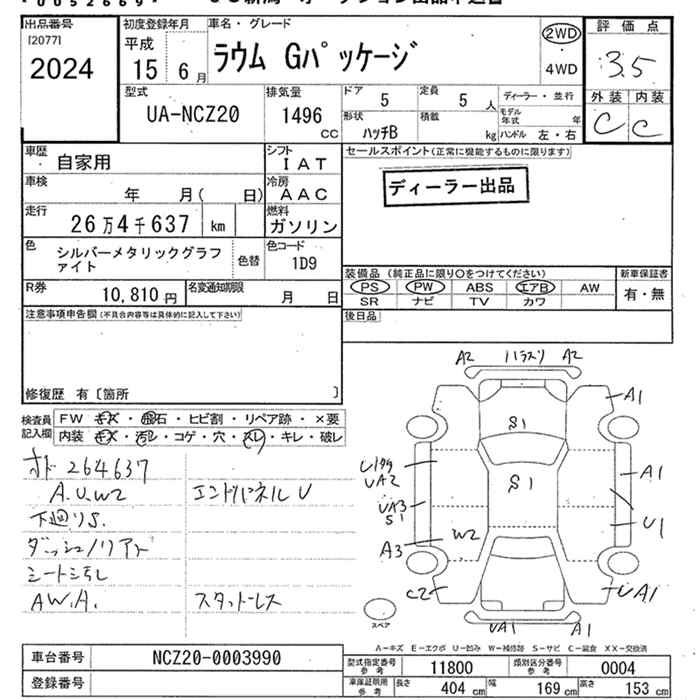 出品番号
[2077]
2024
初度登録年月
平成
15 年 6 月
車名・グレード
ラウム Gパッケージ
2WD
4WD
評価点
3.5
外装 内装
C C
型式
UA-NCZ20
排気量
1496
cc
ドア 5
定員 5 人
ディーラー・並行
モデル年式 年
形状
ハッチB
積載
kg
ハンドル 左・右
車歴
自家用
シフト
IAT
車検
年 月( 日)
冷房
AAC
走行
26万4千637 km
燃料
ガソリン
色
シルバーメタリックグラファイト
色替
色コード
1D9
R券
10,810 円
名変通知期限
月 日
セールスポイント(正常に機能するものに限ります)
ディーラー出品
装備品 (純正品に限り○をつけてください)
PS PW ABS エアB AW
SR ナビ TV カワ
新車保証書
有・無
注意事項申告欄(不具合内容等は具体的に記入して下さい)
後日品
修復歴 有〔箇所 〕
検査員記入欄
FW キズ・飛石・ヒビ割・リペア跡・×要
内装 キズ・汚レ・コゲ・穴・スレ・キレ・破レ
オド 264637
A.U.W2
エンドパネル U
下廻りS.
ダッシュ/リアド
シート汚レ
AW.A.
スタットレス
A2 ハラスリ A2
A1
S1
S1
UA2
A1
UA3
S1
U1
W2
A3
C2
UA1
UA1
A1
スペア
A-キズ E-エクボ U-凹み W-補修跡 S-サビ C-腐食 XX-交換済
車台番号
NCZ20-0003990
登録番号
型式指定番号 参考
11800
類別区分番号 参考
0004
車庫証明用 参考
長さ 404 cm
幅 169 cm
高さ 153 cm